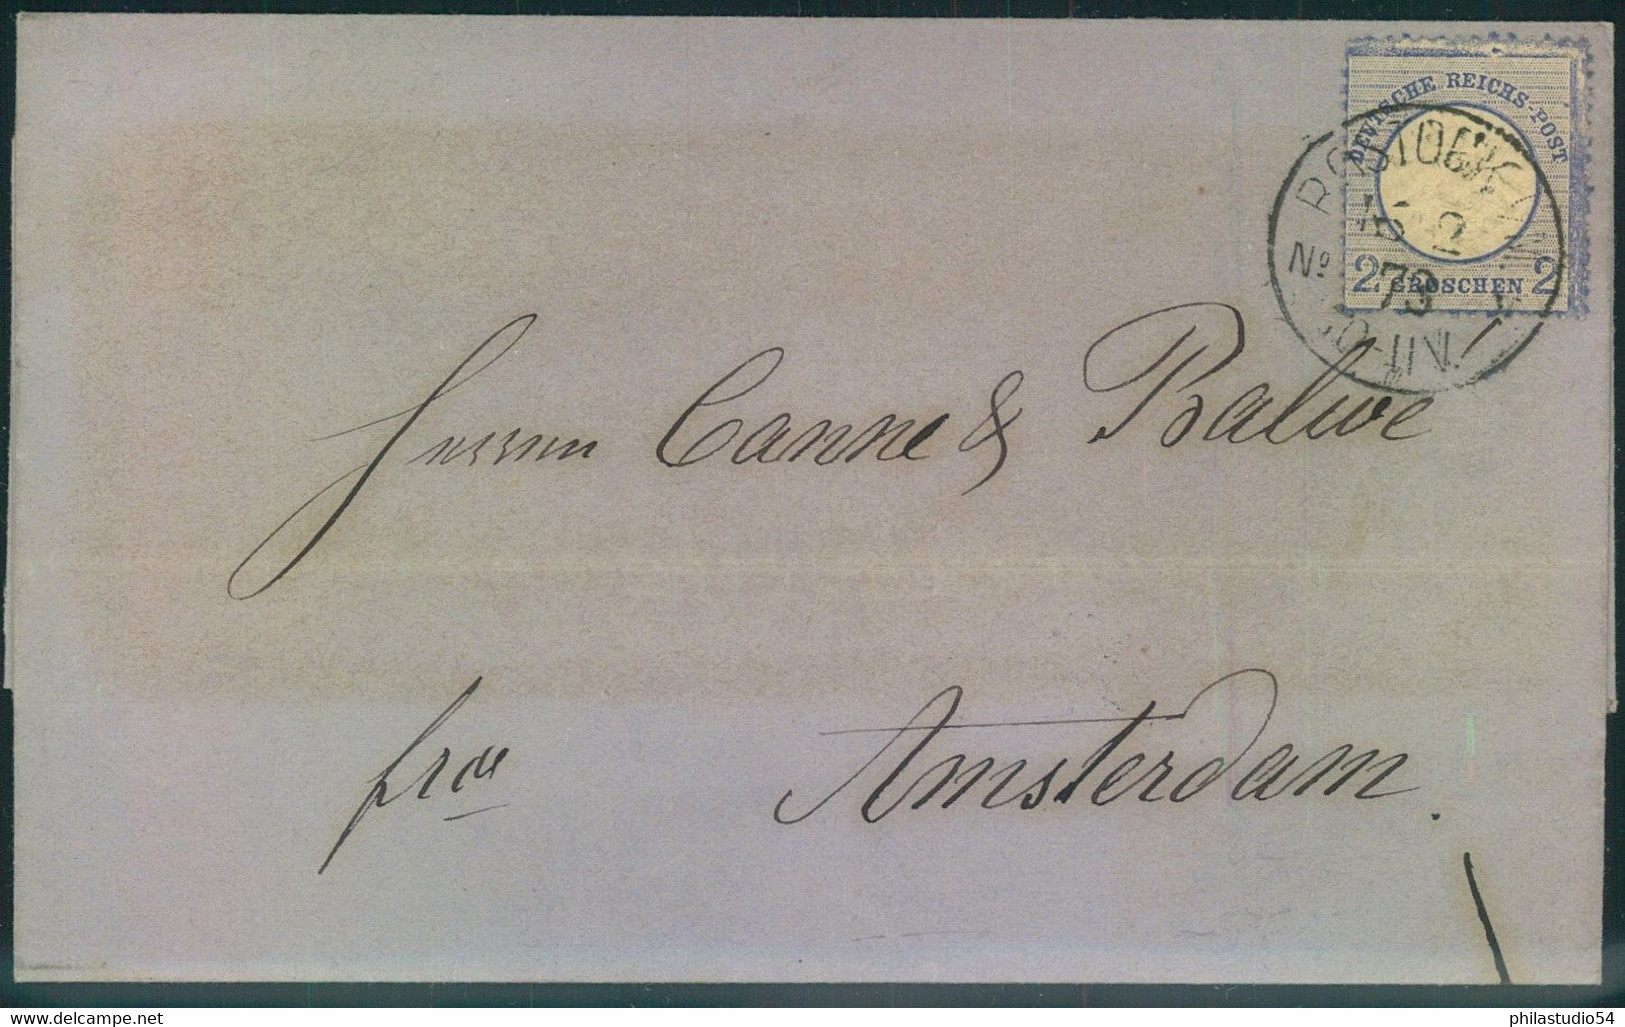 DEUTSCHE REICHS-POST
2 GROSCHEN 2
ROSTOCK
No
15 2
73
Herren Canne & Balwe
frco Amsterdam.
philastudio54